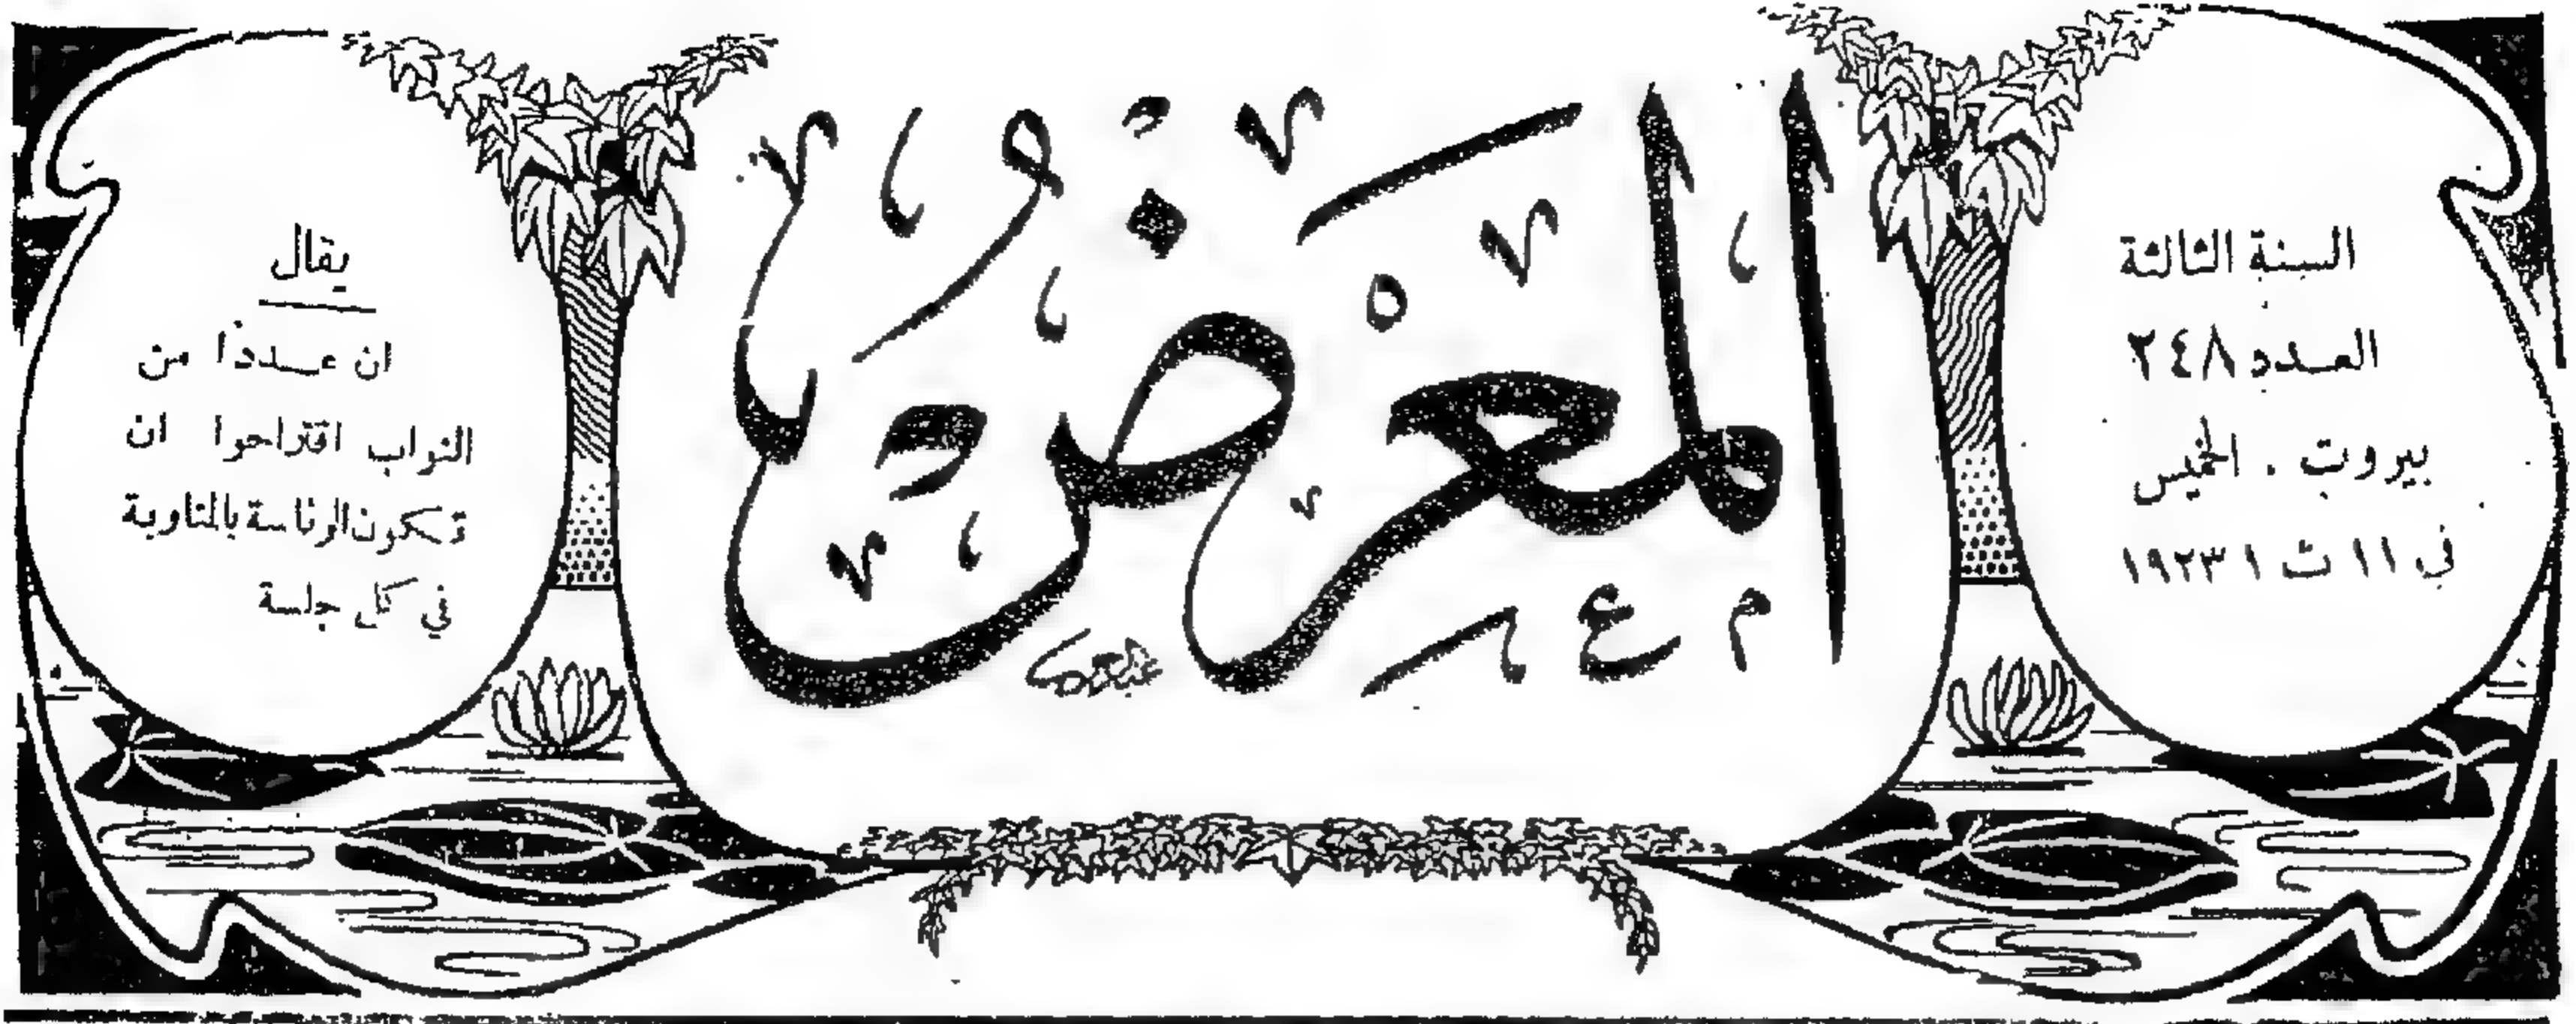 السنة الثالثة
العدد ٢٤٨
بيروت . الخميس
في ١١ ت ١ ١٩٢٣
المعرض
يقال
ان عدداً من
النواب اقتراحوا ان
تكون الرئاسة بالمناوبة
في كل جلسة